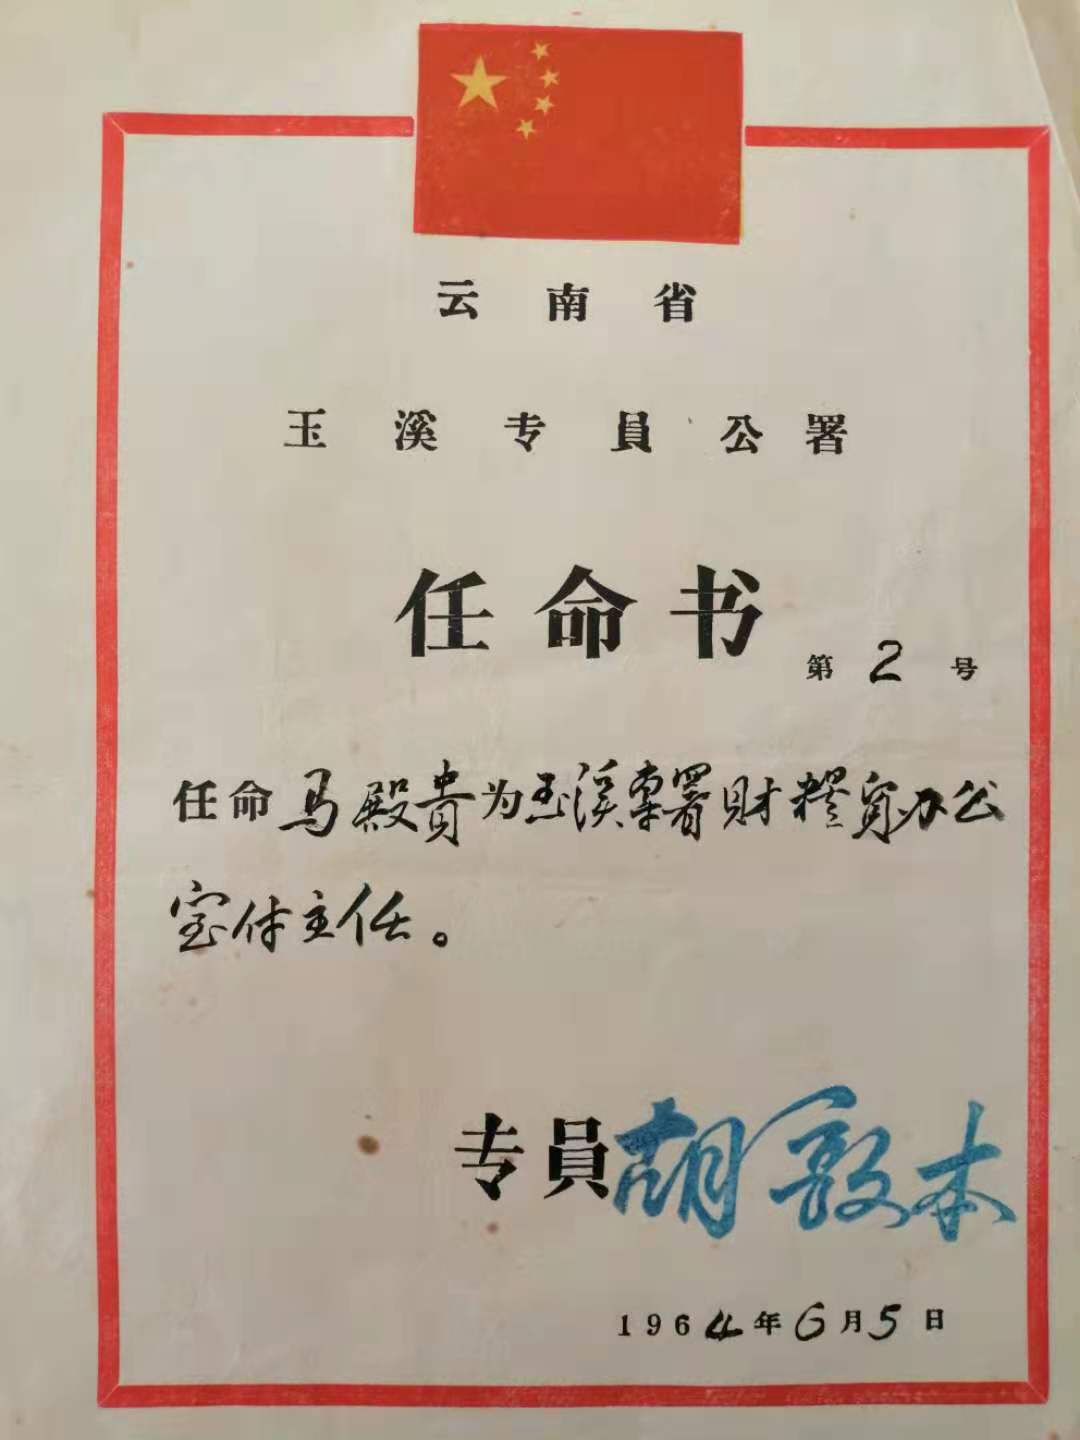 云南省
玉溪专員公署
任命书
第2号
任命马殿贵为玉溪專署財粮貿办公
室付主任。
专員胡敦本
1964年6月5日